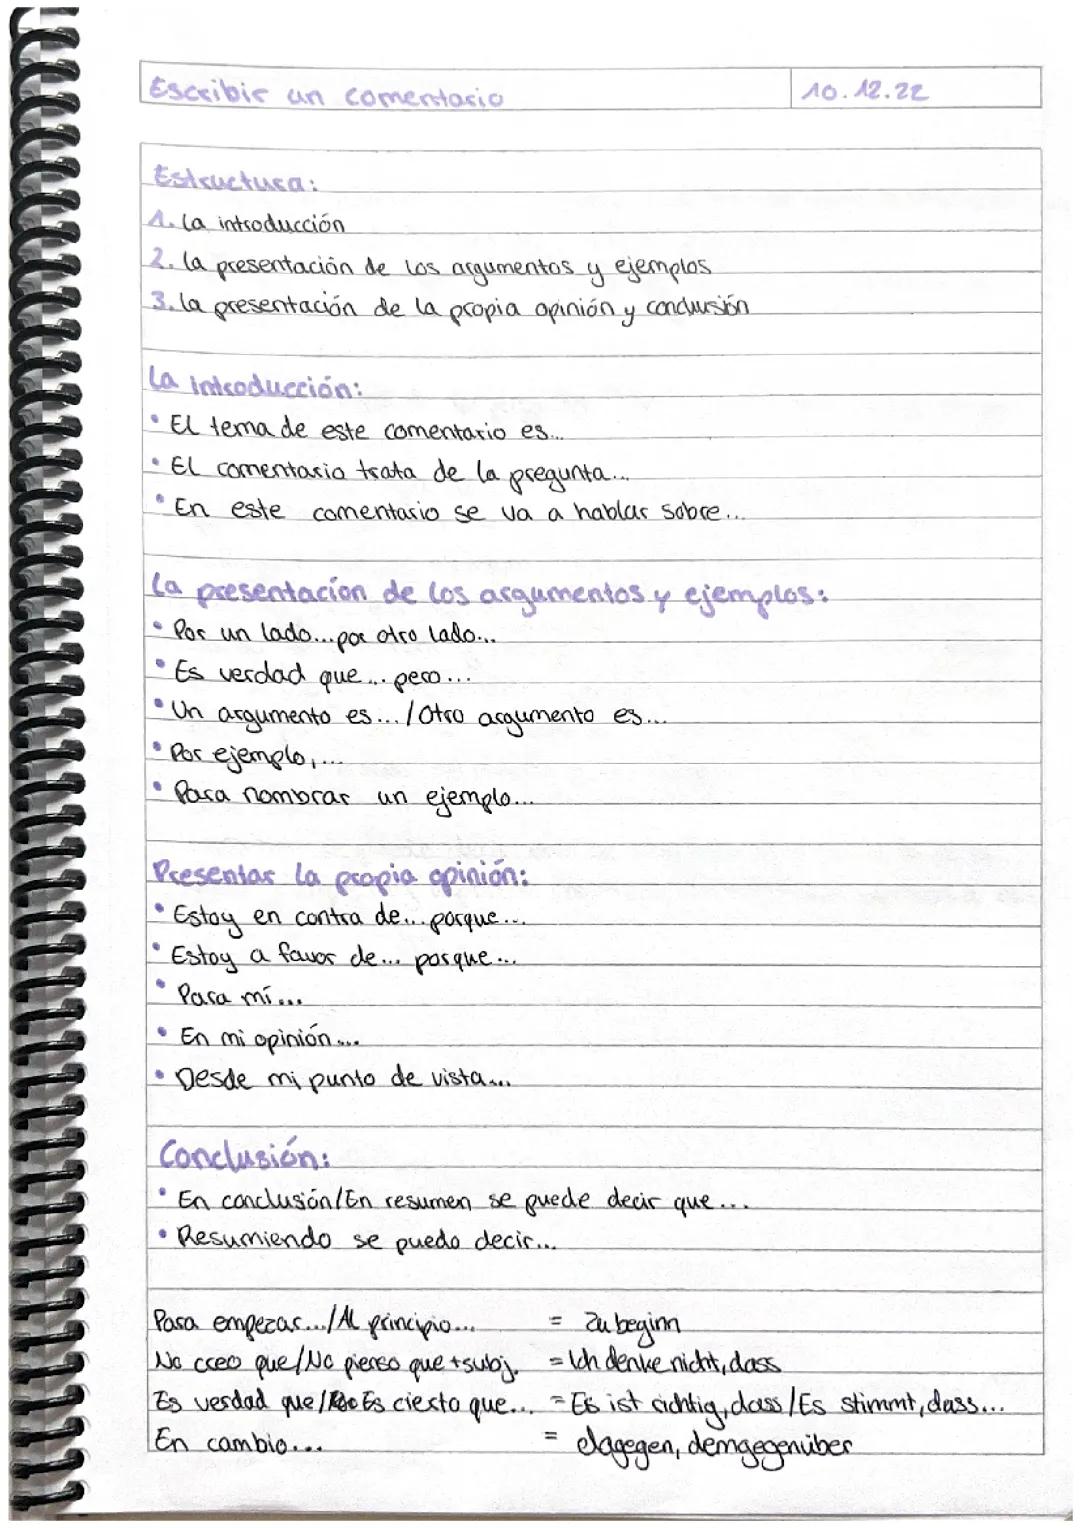 Escribir un comentario 10.12.22
Estructura:
1. la introducción
2. la presentación de los argumentos y ejemplos
3. la presentación de la propia opinión y conclusión
La introducción:
• El tema de este comentario es...
• El comentario trata de la pregunta...
• En este comentario se va a hablar sobre...
La presentación de los argumentos y ejemplos:
• Por un lado...por otro lado...
• Es verdad que... pero...
• Un argumento es.../Otro argumento es...
• Por ejemplo,...
• Para nombrar un ejemplo...
Presentar la propia opinión:
• Estoy en contra de... porque...
• Estoy a favor de... porque...
• Para mí...
• En mi opinión...
• Desde mi punto de vista...
Conclusión:
• En conclusión/En resumen se puede decir que...
• Resumiendo se puedo decir...
Para empezar.../Al principio... = Zu beginn
No creo que/No pienso que+subj. = Ich denke nicht, dass
Es verdad que/Es cierto que... = Es ist richtig, dass/Es stimmt, dass...
En cambio... = dagegen, demgegenüber